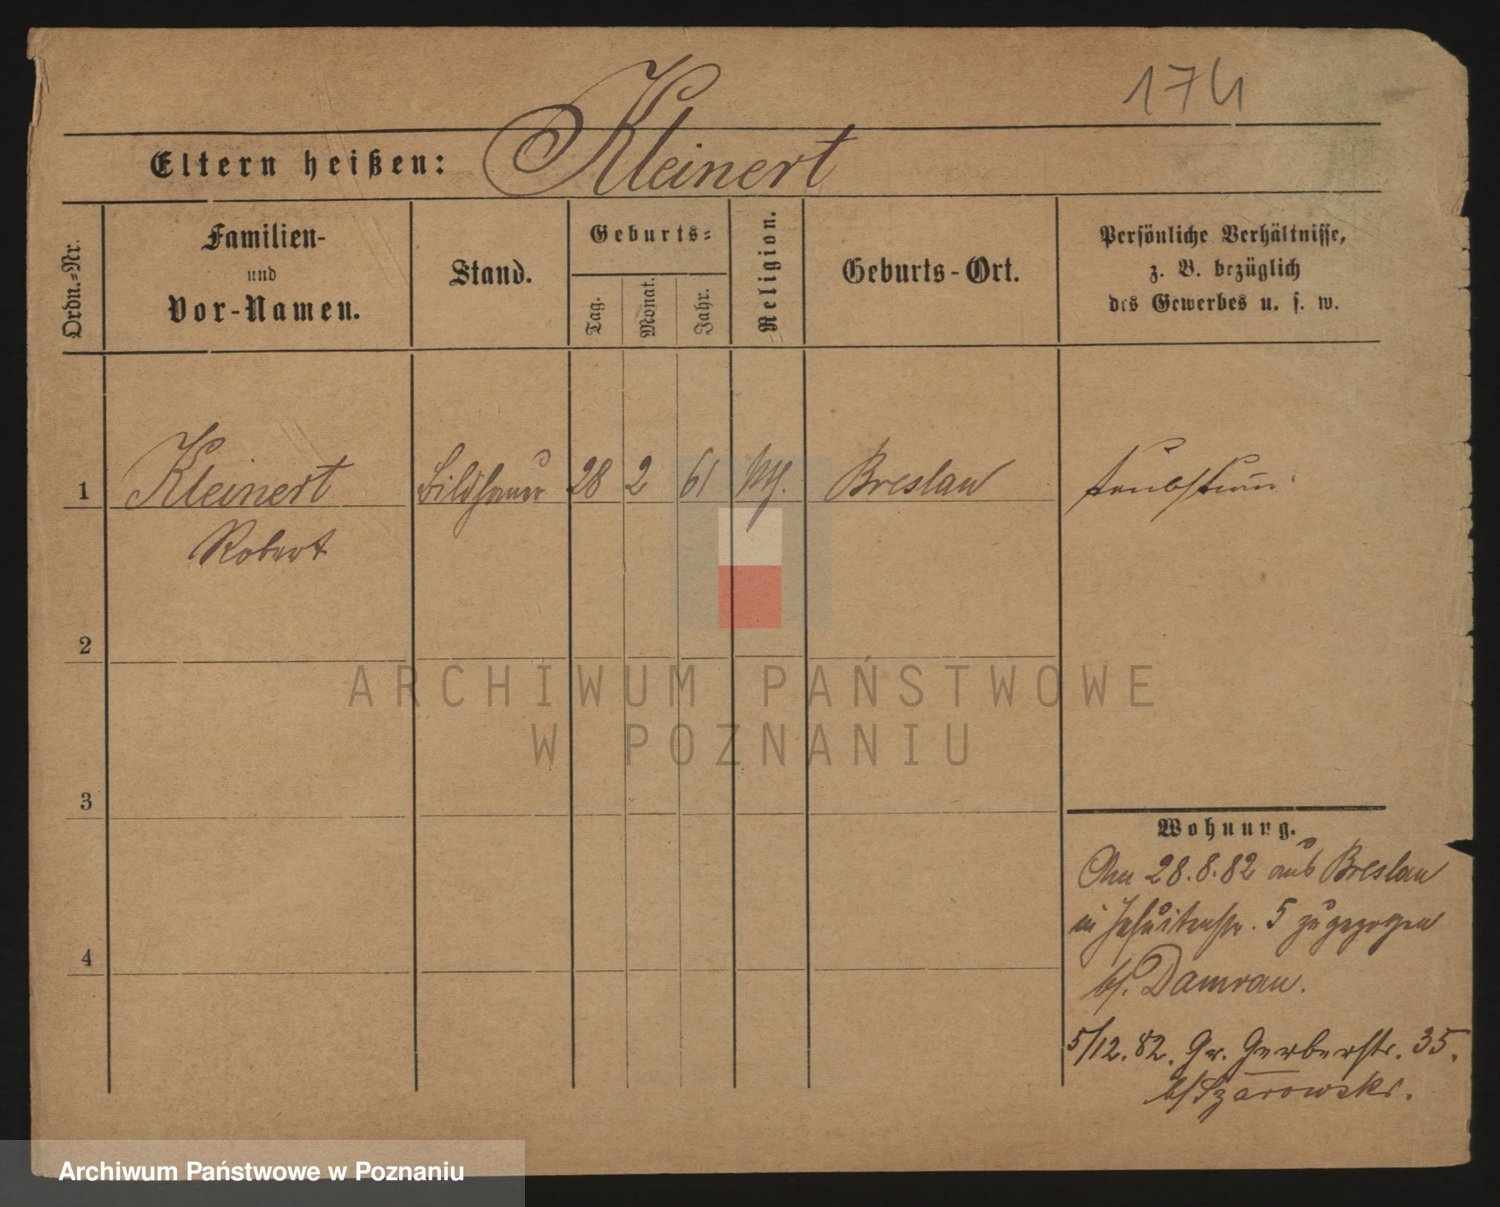 174
Eltern heißen: Kleinert
Ordn.-Nr.
Familien-
und
Vor-Namen.
Stand.
Geburts-
Tag.
Monat.
Jahr.
Religion.
Geburts-Ort.
Persönliche Verhältnisse,
z. B. bezüglich
des Gewerbes u. s. w.
1 Kleinert Bildhauer 28 2 61 Breslau taubstum
Robert
2
3
4
Wohnung.
Am 28.8.82 aus Breslau
in Jesuitenstr. 5 zugezogen
b/. Damrau.
5/12.82. Gr. Gerberstr. 35.
b/ Szarowski.
ARCHIWUM PAŃSTWOWE
W POZNANIU
Archiwum Państwowe w Poznaniu